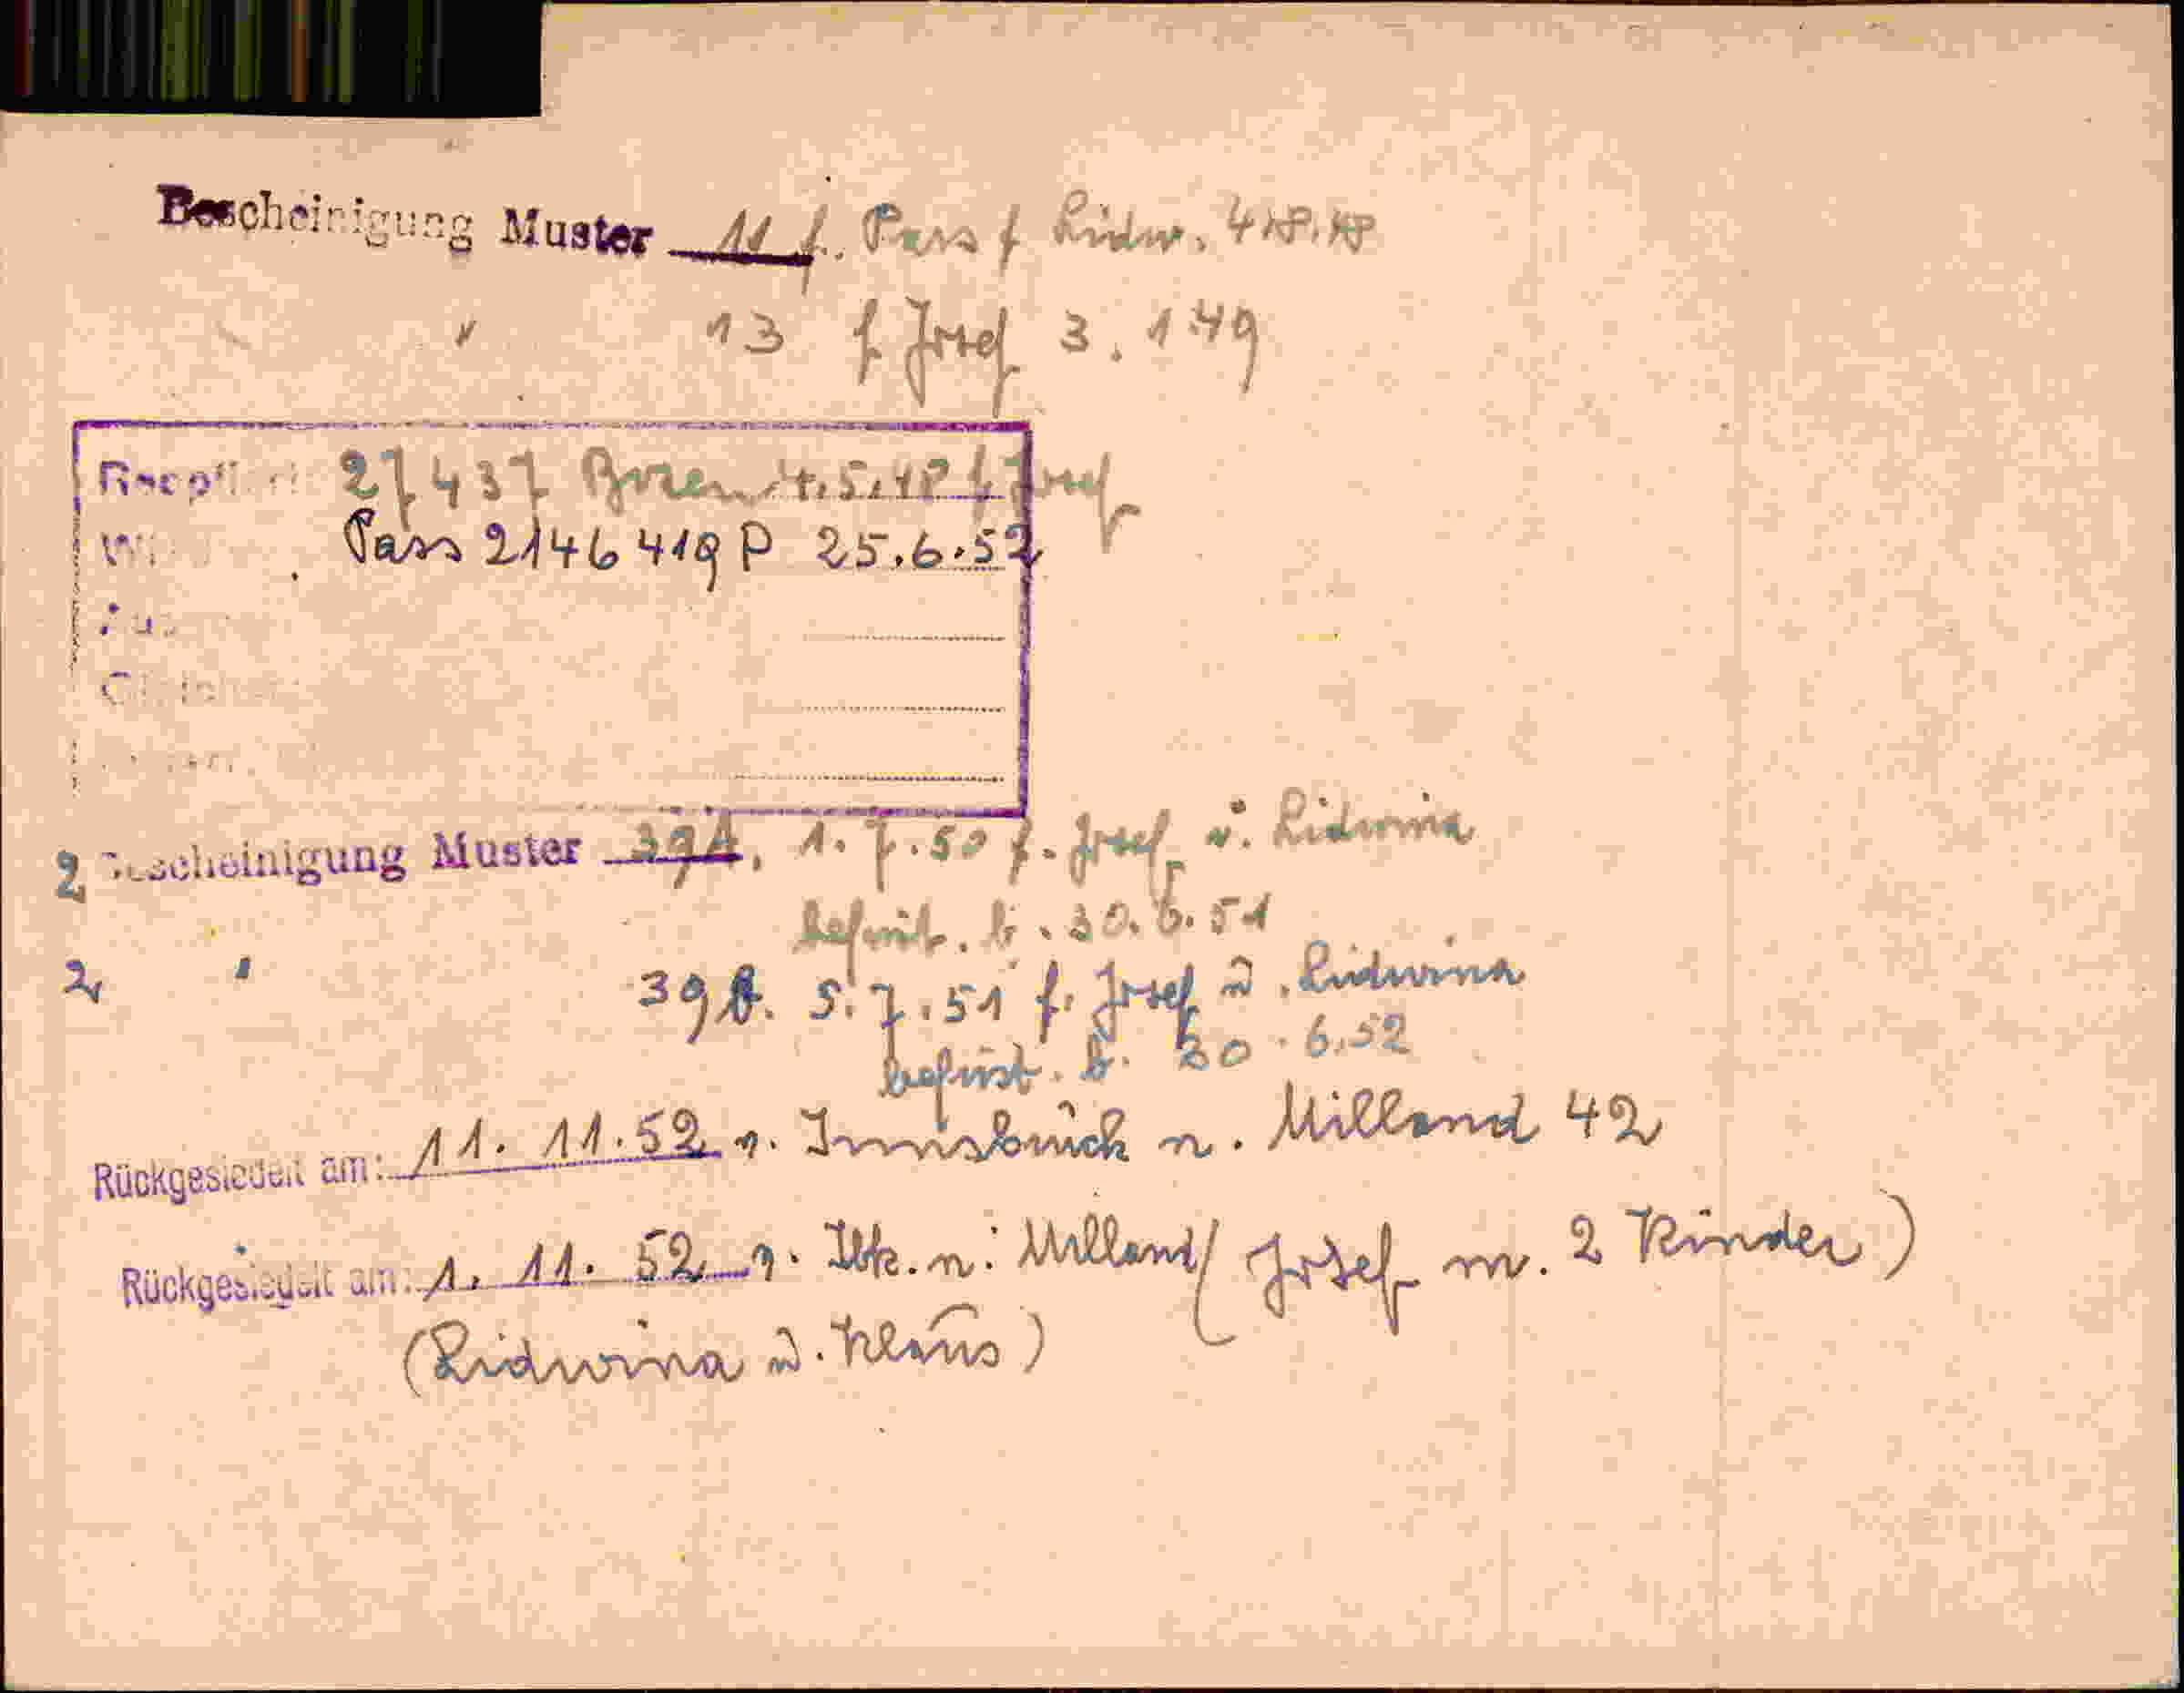 Bescheinigung Muster 11 f. Pass f Lidw. 4.8.48
" 13 f Josef 3.1.49
27437 Bozen 4.5.48 f Josef
Pass 2146419 P 25.6.52
2 Bescheinigung Muster 39A, 1.7.50 f. Josef u. Lidwina
befrist. b. 30.6.51
2 " 39A. 5.7.51 f. Josef u. Lidwina
befrist. b. 30.6.52
Rückgesiedelt am: 11. 11. 52 v. Innsbruck n. Milland 42
Rückgesiedelt am: 1. 11. 52 v. Ibk. n. Milland (Josef m. 2 Kinder)
(Lidwina u. Klaus)